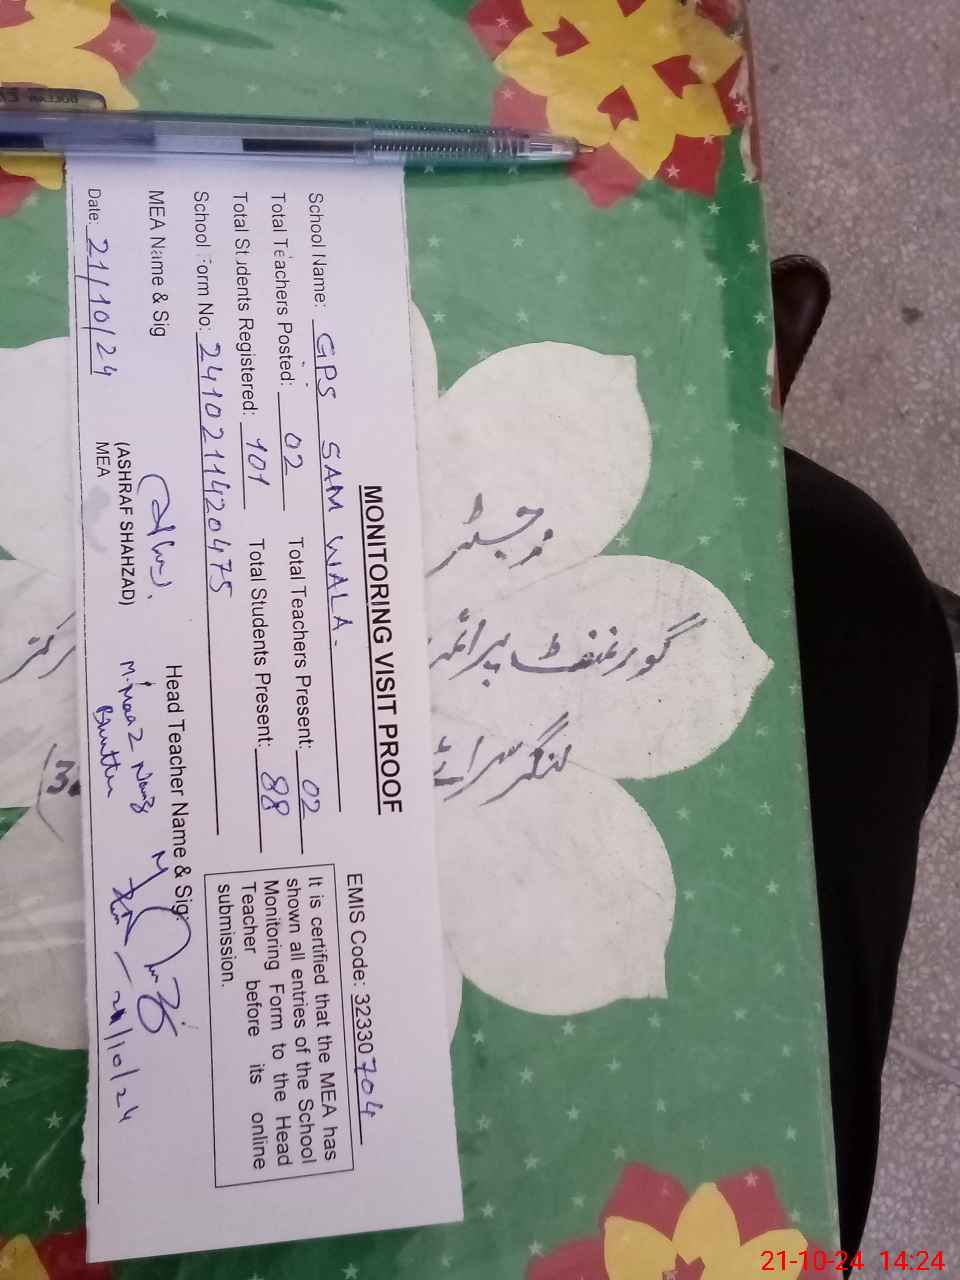 MONITORING VISIT PROOF
EMIS Code: 32330704
School Name: GPS SAM WALA.
Total Teachers Posted: 02 Total Teachers Present: 02
Total Students Registered: 101 Total Students Present: 88
School Form No: 2410211420475
It is certified that the MEA has
shown all entries of the School
Monitoring Form to the Head
Teacher before its online
submission.
MEA Name & Sig
Head Teacher Name & Sig:
(ASHRAF SHAHZAD)
MEA
Date: 21/10/24
21/10/24
رجسٹر
گورنمنٹ پرائمر
لنگر سرائے
21-10-24 14:24